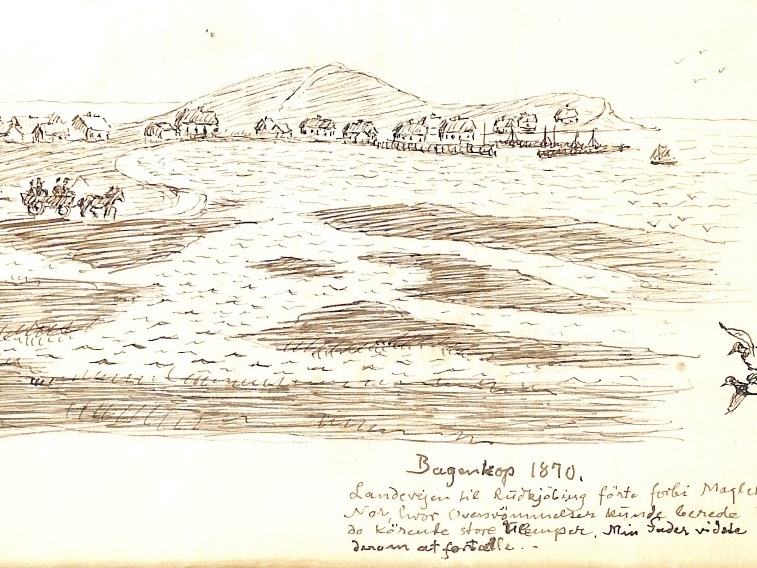 Bagenkop 1870.
Landevejen til Rudkjöbing förte forbi Magle
Nor, hvor Oversvömmelser kunde berede
de körende store Ulemper. Min Fader vidste
derom at fortælle. -